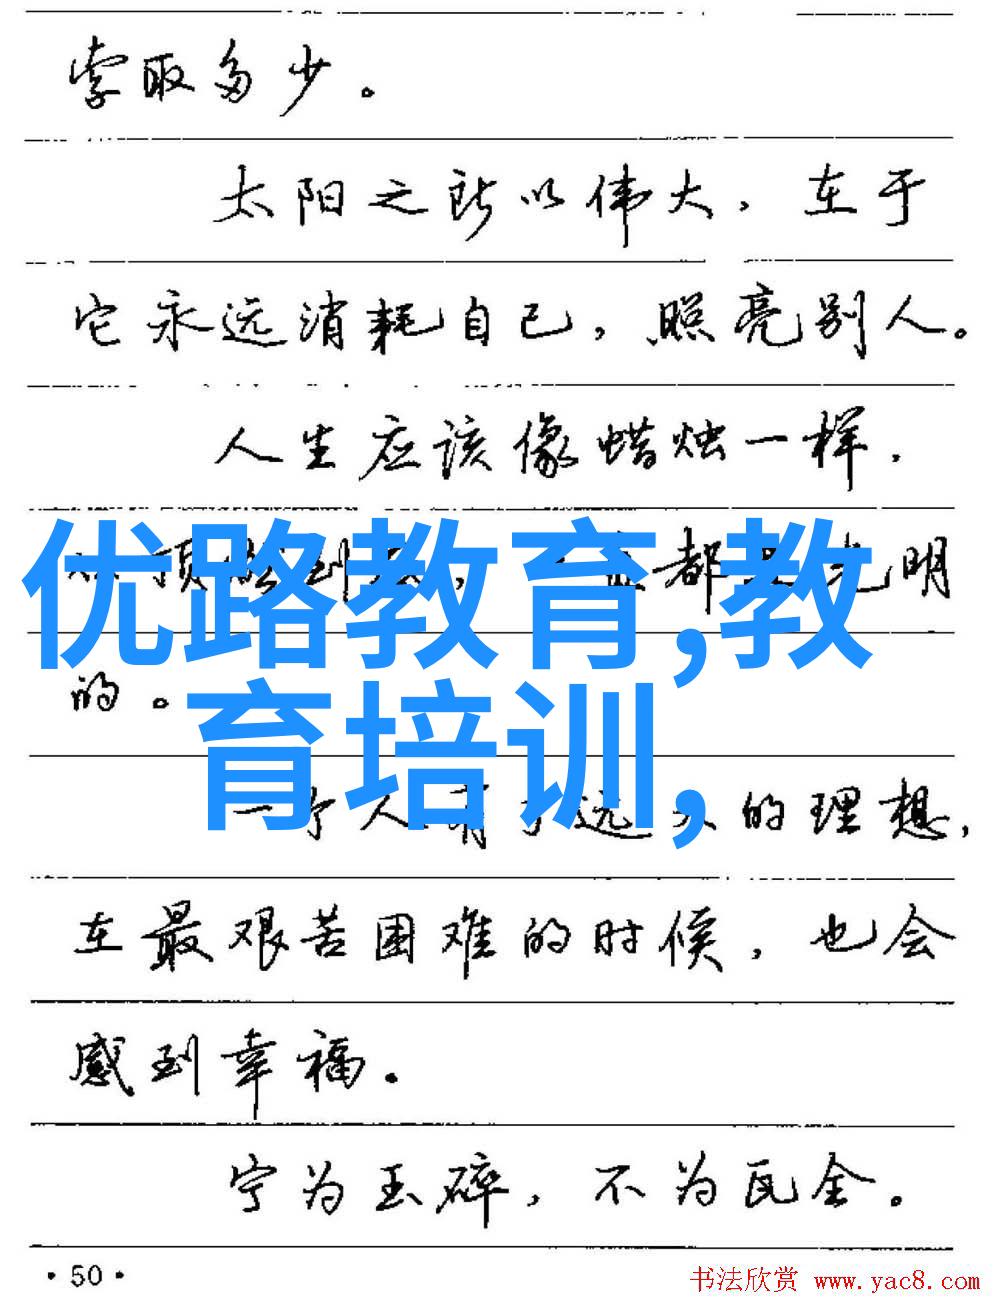 索取多少。
太阳之所以伟大,在于
它永远消耗自己,照亮别人。
人生应该像蜡烛一样,
顶 到 都 光明
的。
优路教育,教
育培训,
一个人有了远大的理想,
在最艰苦困难的时候,也会
感到幸福.
宁为玉碎,不为瓦全。
·50·
书法欣赏 www.yac8.com